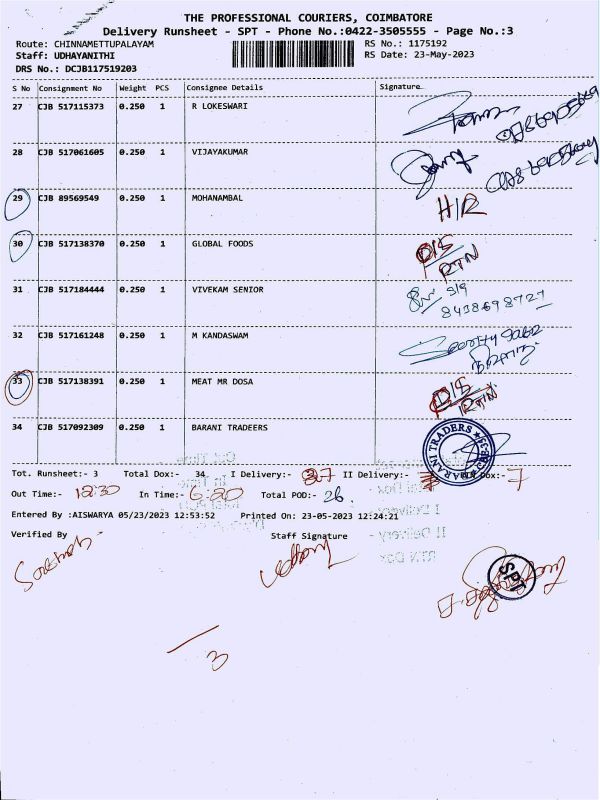 THE PROFESSIONAL COURIERS, COIMBATORE
Delivery Runsheet - SPT - Phone No.:0422-3505555 - Page No.:3
Route: CHINNAMETTUPALAYAM RS No.: 1175192
Staff: UDHAYANITHI RS Date: 23-May-2023
DRS No.: DCJB117519203
S No Consignment No Weight PCS Consignee Details Signature
27 CJB 517115373 0.250 1 R LOKESWARI
28 CJB 517061605 0.250 1 VIJAYAKUMAR
29 CJB 89569549 0.250 1 MOHANAMBAL H/R
30 CJB 517138370 0.250 1 GLOBAL FOODS D/S
RTN
31 CJB 517184444 0.250 1 VIVEKAM SENIOR
8438698727
32 CJB 517161248 0.250 1 M KANDASWAM
33 CJB 517138391 0.250 1 MEAT MR DOSA D/S
RTN
34 CJB 517092309 0.250 1 BARANI TRADEERS BARANI TRADERS
Tot. Runsheet:- 3 Total Dox:- 34 I Delivery:- 27 II Delivery:- Dox:- 7
Out Time:- 12:30 In Time:- 6.20 Total POD:- 26.
Entered By :AISWARYA 05/23/2023 12:53:52 Printed On: 23-05-2023 12:24:21
Verified By Staff Signature
SPT
3